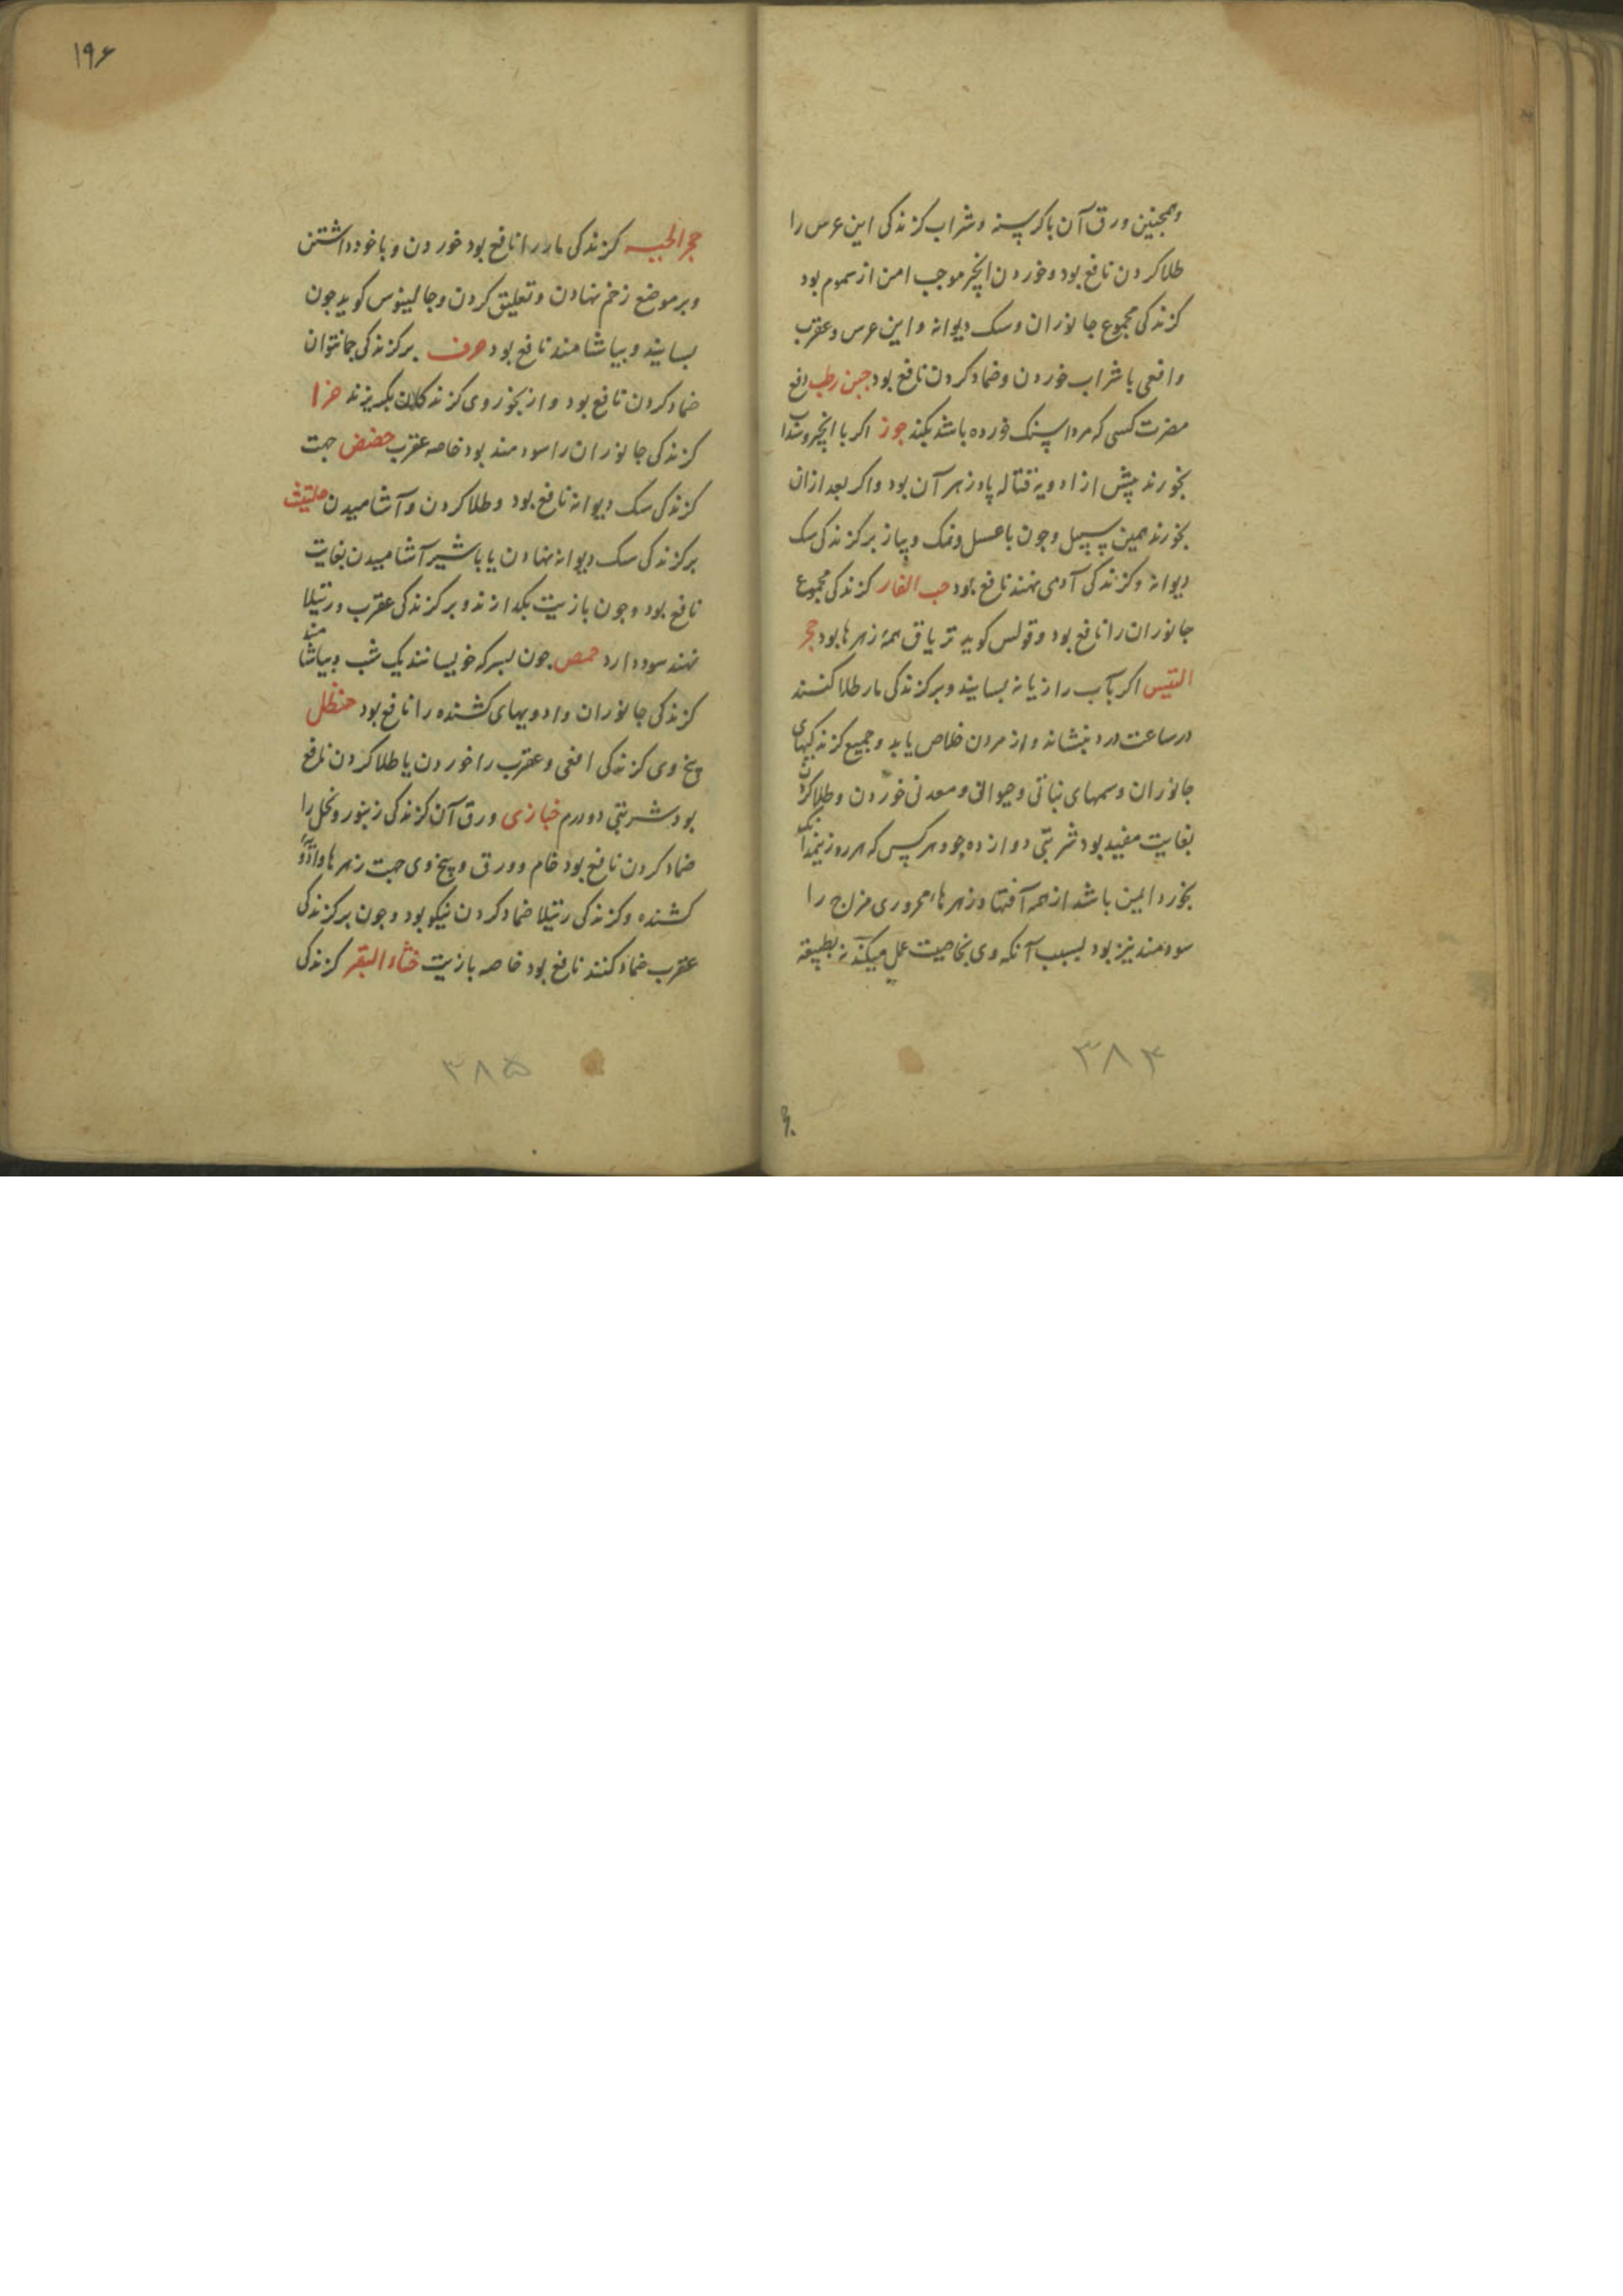 وهمجنین ورق آن با کرسنه و شراب کزندکی ابن عرس را
طلا کردن نافع بود و خوردن انجیر موجب امن از سموم بود
کزندکی مجموع جانوران و سک دیوانه و ابن عرس و عقرب
و افعی با شراب خوردن و ضماد کردن نافع بود جبن رطب دفع
مضرت کسی که مرداسنک خورده باشد بکند جوز اکر با انجیر و سداب
بخورند پیش از ادویه قتاله پادزهر آن بود و اکر بعد ازان
بخورند همین سبیل و جون با عسل و نمک و پیاز بر کزندکی سک
دیوانه و کزندکی آدمی نهند نافع بود حب الغار کزندکی مجموع
جانوران را نافع بود و قولس کوید تریاق همه زهرها بود حجر
التیس اکر بآب رازیانه بسایند و بر کزندکی مار طلا کنند
در ساعت درد بنشاند و از مردن خلاص یابد و جمیع کزندکیهای
جانوران و سمهای نباتی و حیوانی و معدنی خوردن و طلا کردن
بغایت مفید بود شربتی دوازده جو و هر کس که هر روز نیمدانک
بخورد ایمن باشد از همه آفتها و زهرها محروری مزاج را
سودمند نیز بود بسبب آنکه وی بخاصیت عمل میکند نه بطبیعة
۳۸۴
۱۹۶
حجر الحیه کزندکی مار را نافع بود خوردن و با خود داشتن
و بر موضع زخم نهادن و تعلیق کردن و جالینوس کوید جون
بسایند و بیاشامند نافع بود حرف بر کزندکی جانوران
ضماد کردن نافع بود و از بخور وی کزندکان بکریزند حزا
کزندکی جانوران را سودمند بود خاصه عقرب حضض جهت
کزندکی سک دیوانه نافع بود و طلا کردن و آشامیدن حلتیت
بر کزندکی سک دیوانه نهادن یا با شیر آشامیدن بغایت
نافع بود و جون با زیت بکدازند و بر کزندکی عقرب و رتیلا
نهند سود دارد حمص جون بسرکه خویسانند یک شب و بیاشامند
کزندکی جانوران و ادویهای کشنده را نافع بود حنظل
بیخ وی کزندکی افعی و عقرب را خوردن یا طلا کردن نافع
بود شربتی دو درم خبازی ورق آن کزندکی زنبور و نحل را
ضماد کردن نافع بود خام و ورق و بیخ وی جهت زهرها و ادویه
کشنده و کزندکی رتیلا ضماد کردن نیکو بود و جون بر کزندکی
عقرب ضماد کنند نافع بود خاصه با زیت خثاء البقر کزندکی
۳۸۵